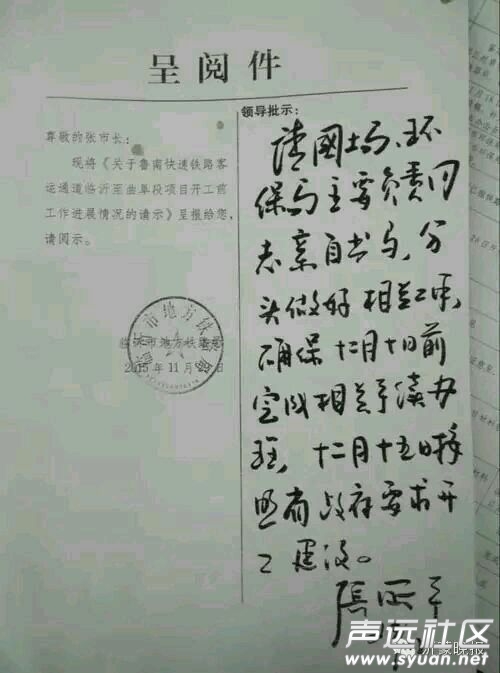 呈阅件
尊敬的张市长：
现将《关于鲁南快速铁路客
运通道临沂至曲阜段项目开工前
工作进展情况的请示》呈报给您，
请阅示。
临沂市地方铁路局
2015年11月29日
领导批示：
请国土局、环
保局主要负责同
志亲自出马，分
头做好相关工作，
确保十二月十日前
完成相关手续办
理，十二月十五日按
照省政府要求开
工建设。
张
声远社区
www.syuan.net